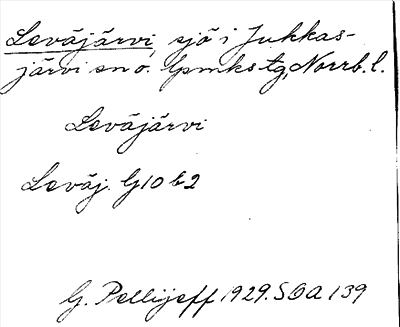 Leväjärvi, sjö i Jukkas-
järvi sn o. Lpmks tg, Norrb. l.
Leväjärvi
Leväj. G10 b2
G. Pellijeff 1929. SOA 139